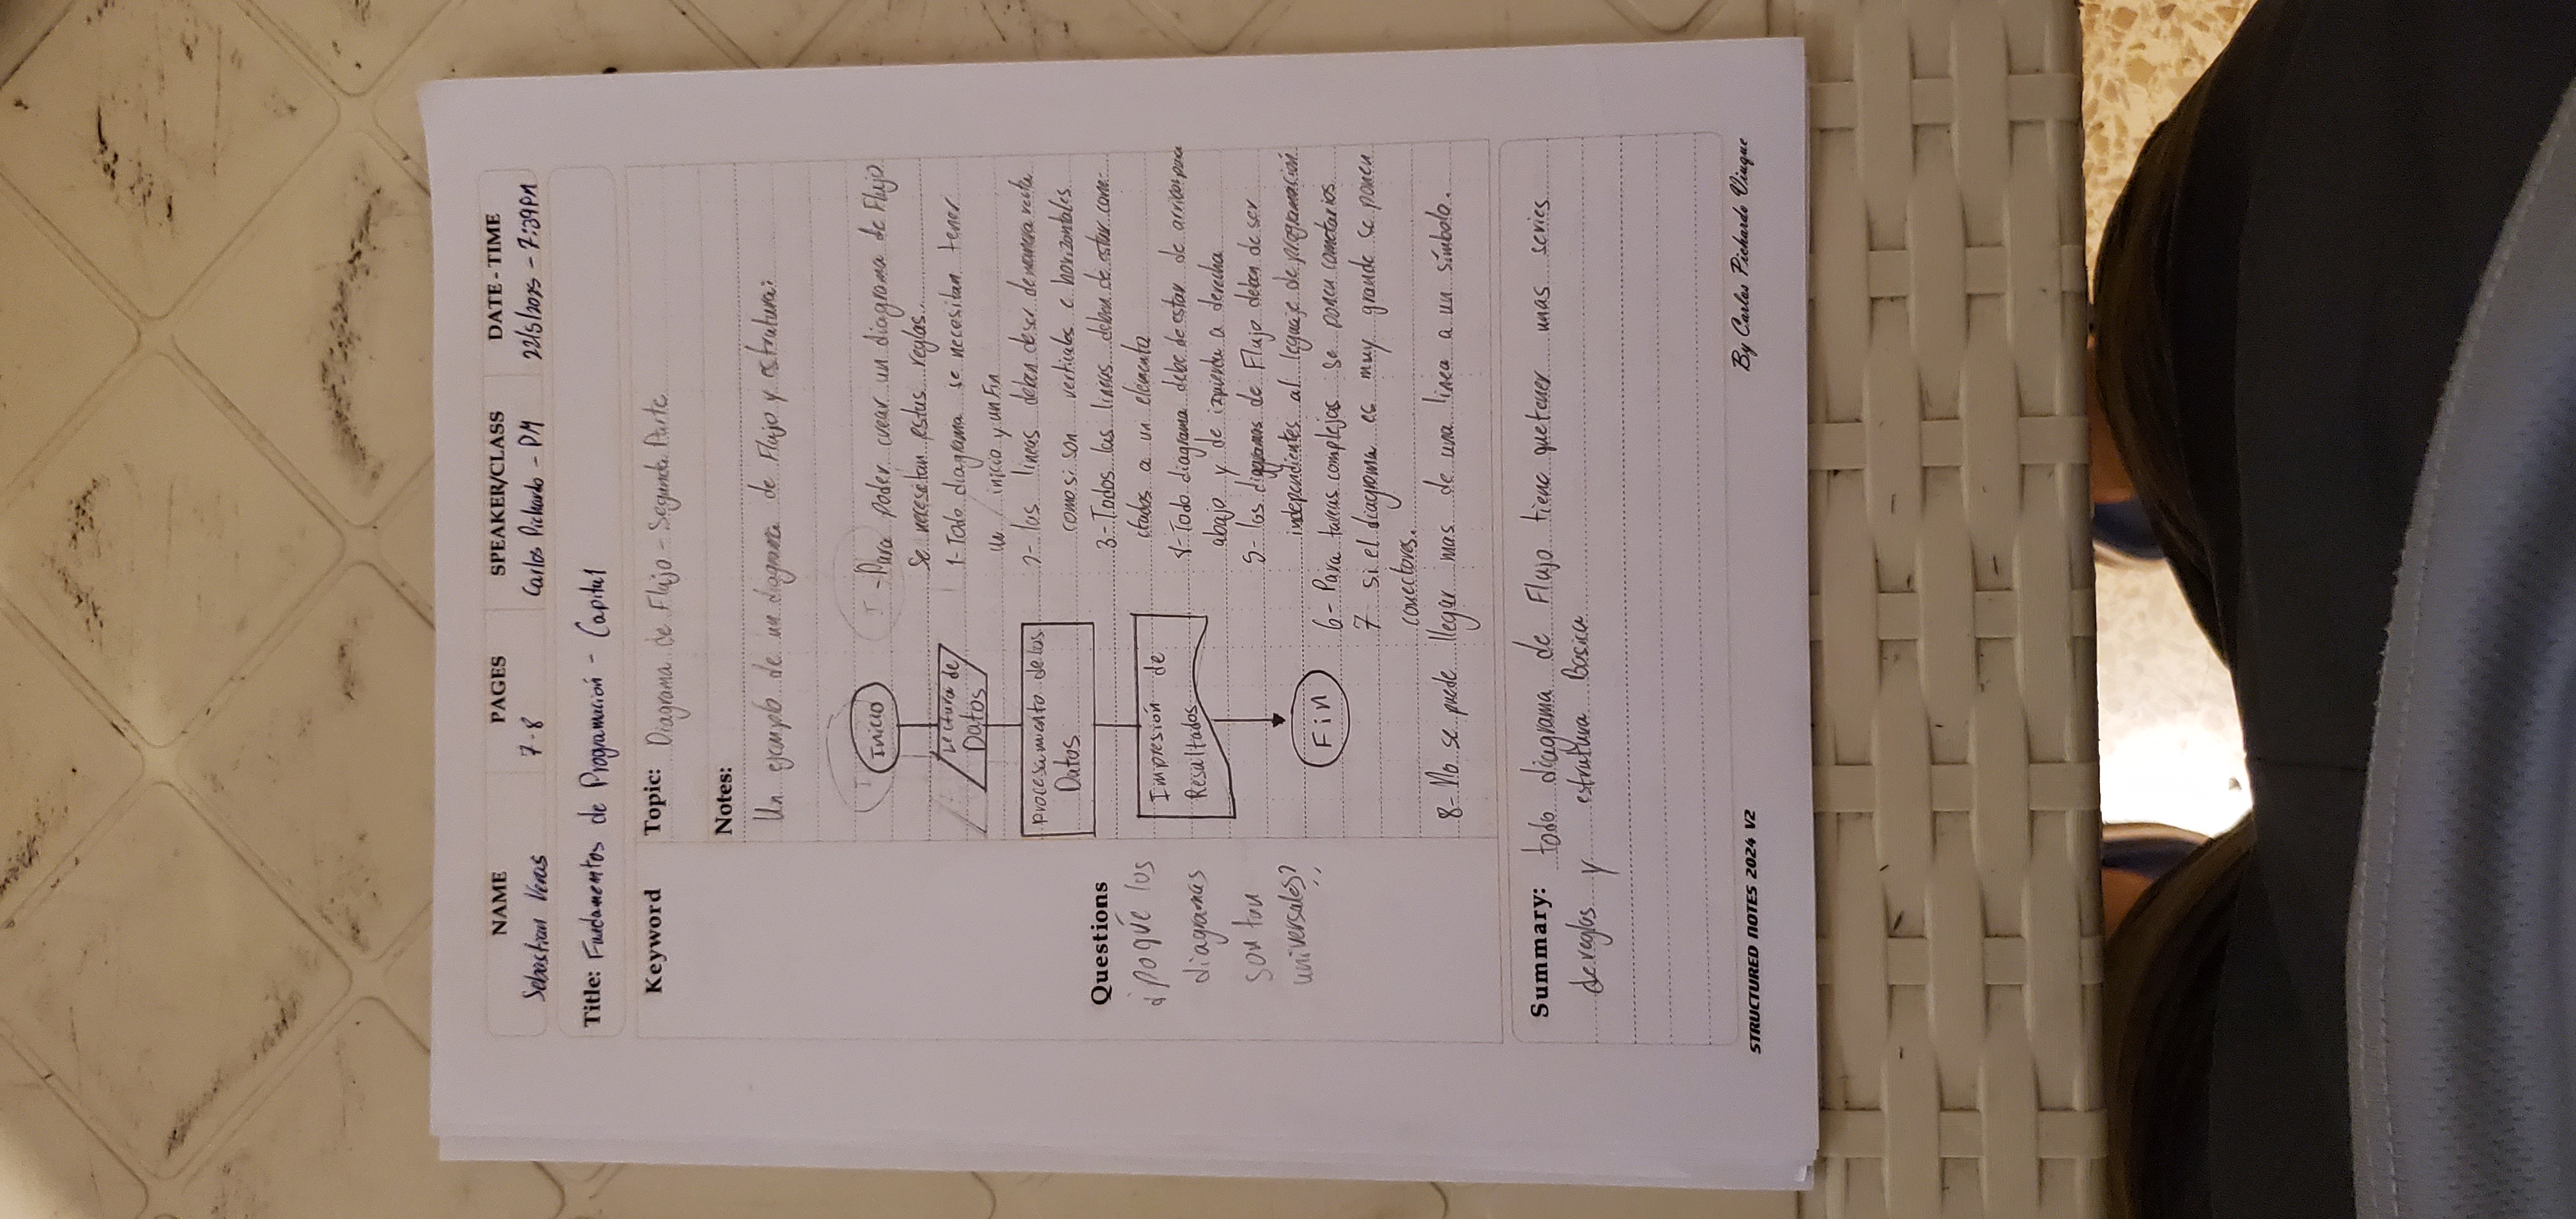 NAME PAGES SPEAKER/CLASS DATE-TIME
Sebastian Veras 7-8 Carlos Pichardo - PM 22/5/2025 - 7:39PM
Title: Fundamentos de Programación - Capitul
Keyword
Topic: Diagrama de Flujo - Segunda Parte
Notes:
Un ejemplo de un diagrama de Flujo y estrutura:
Inicio
Lectura de
Datos
Procesamiento de los
Datos
Impresión de
Resultados
Fin
-Para poder crear un diagrama de Flujo
se necesitan estas reglas.
1-Todo diagrama se necesitan tener
un inicio y un Fin
2- las lineas deben de ser de manera recta
como si son verticales e horizontales
3-Todos las lineas deben de estar cone-
ctados a un elemento
4-Todo diagrama debe de estar de arriba para
abajo y de izquierda a derecha
5- los diagramas de Flujo deben de ser
independientes al leguaje de programación
6- Para tareas complejas se ponen cometarios
7 si el diagrama es muy grande se ponen
conectores.
8- No se puede llegar mas de una linea a un símbolo.
Questions
¿poqué los
diagramas
son tan
universales?
Summary: todo diagrama de Flujo tiene que tener unas series
de reglas y estrutura Basica
STRUCTURED NOTES 2024 V2
By Carlos Pichardo Viuque